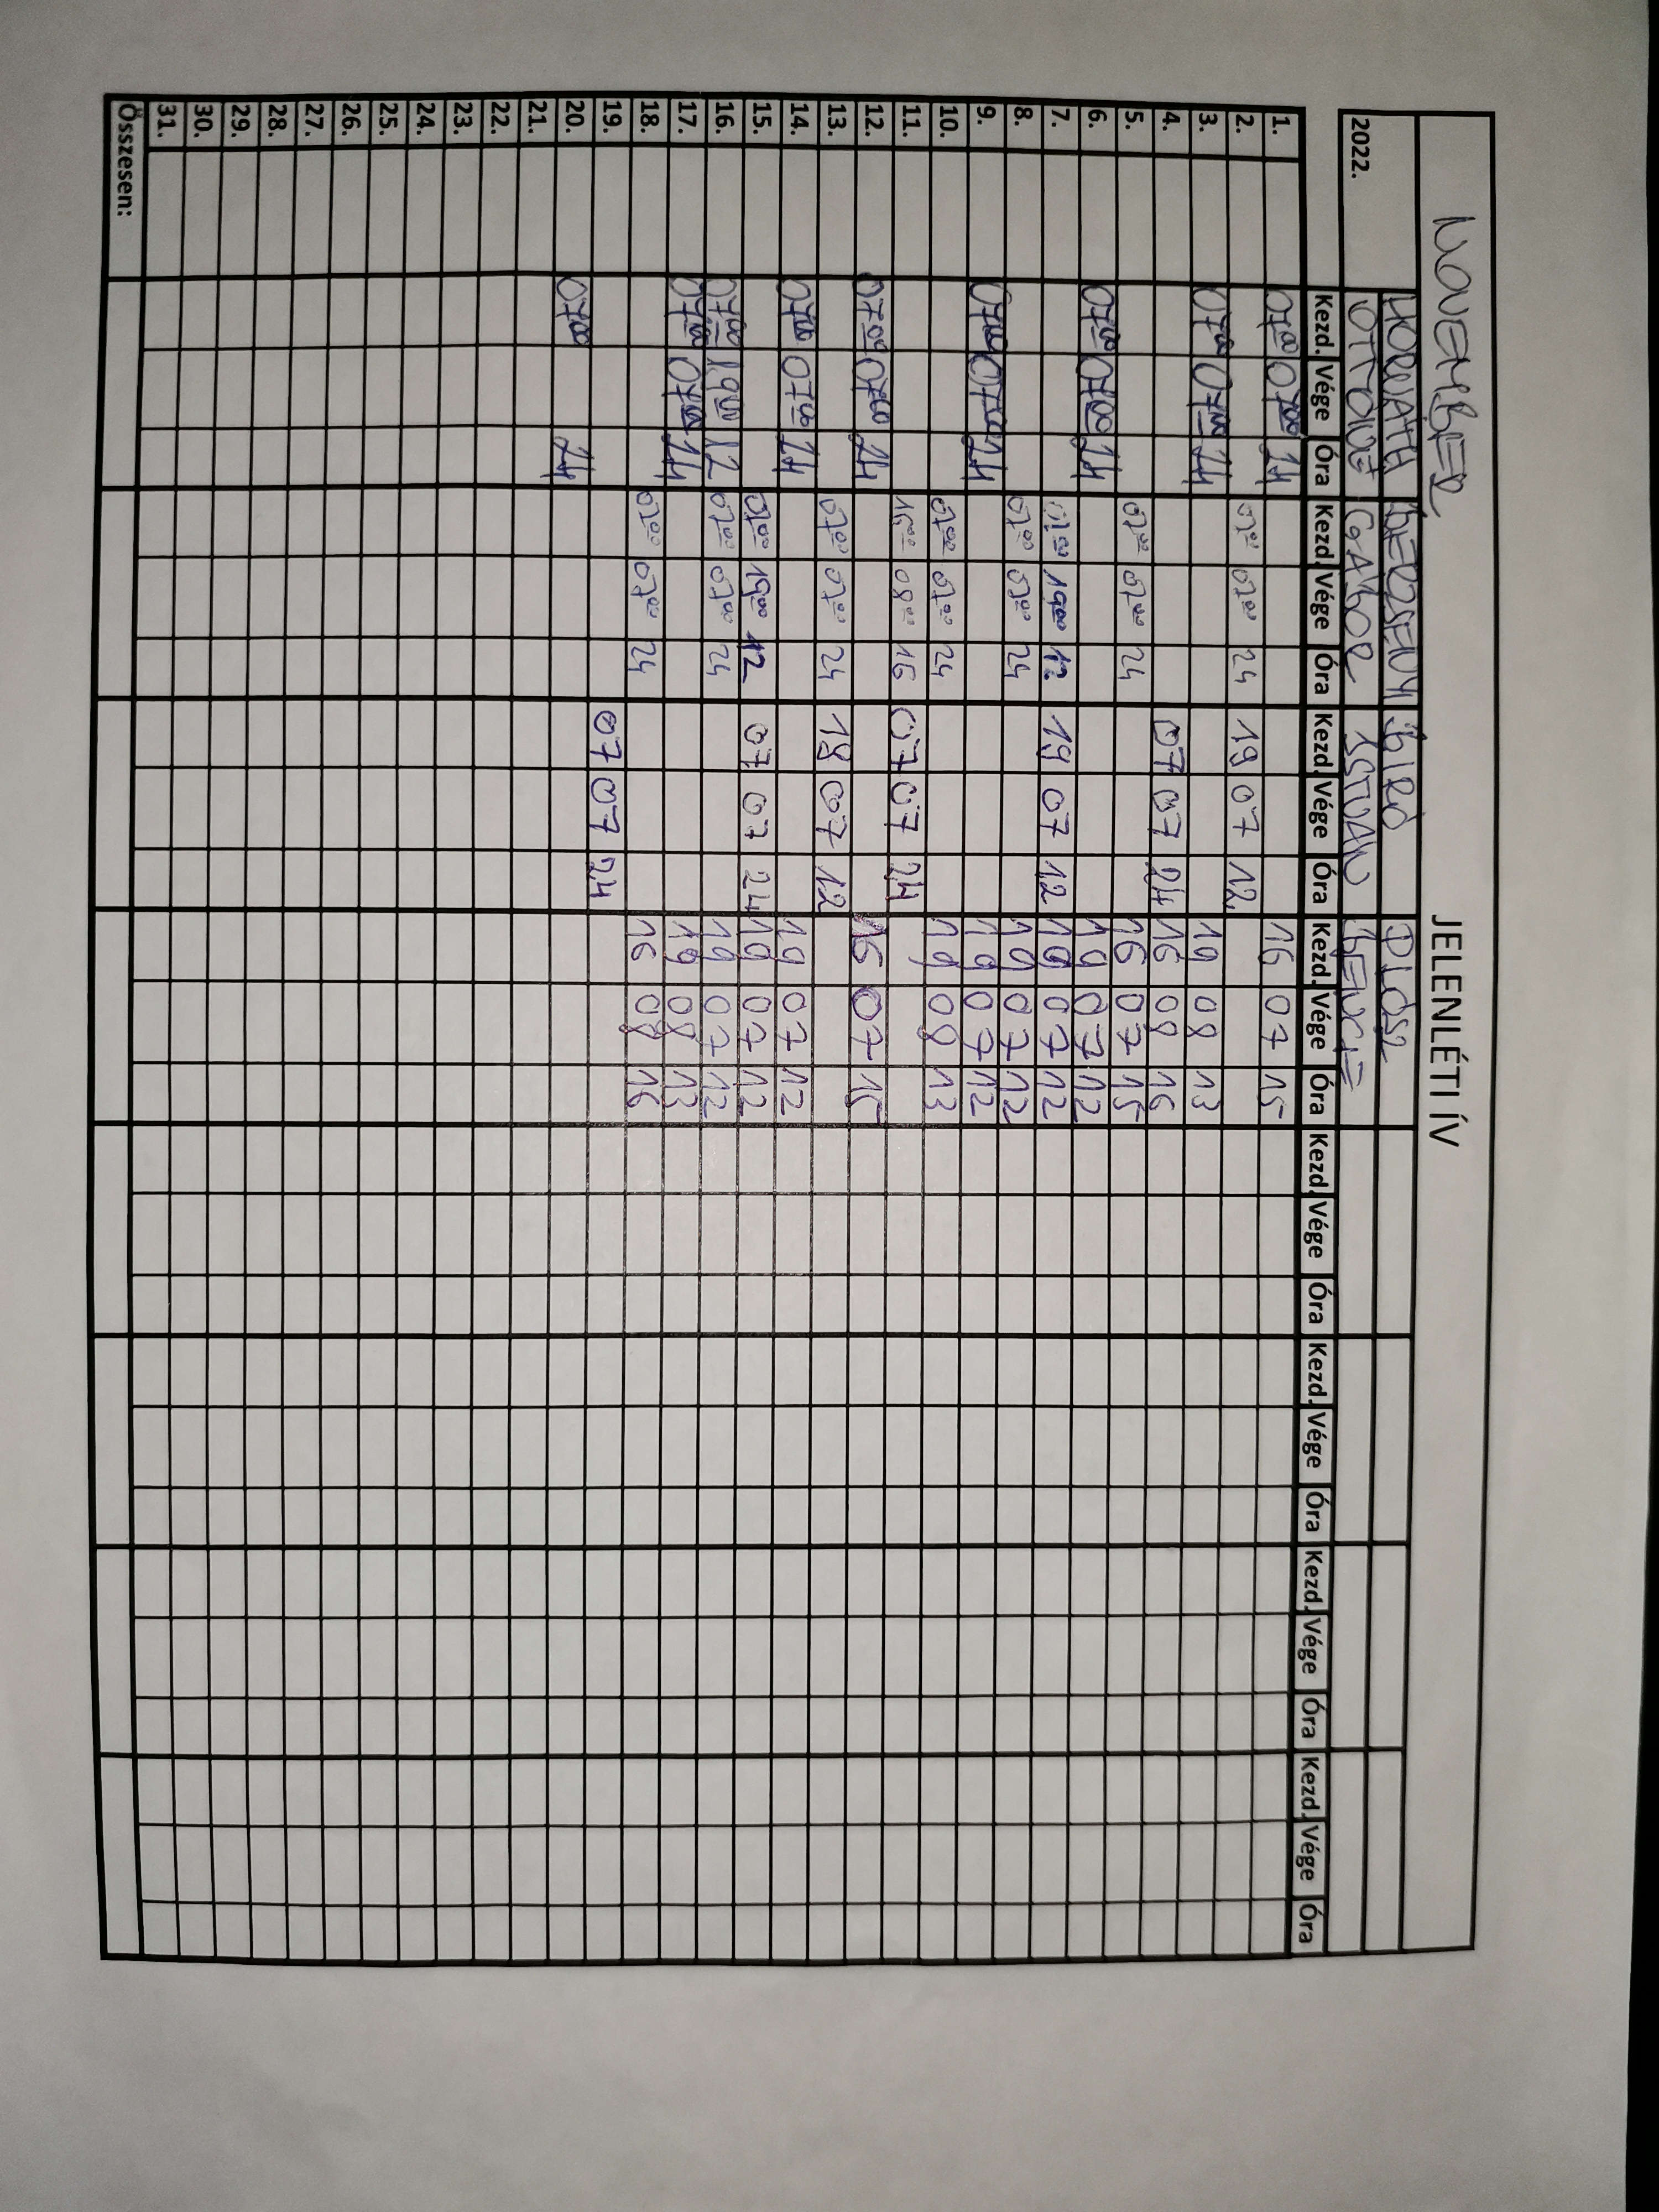 NOVEMBER JELENLÉTI ÍV
HORVÁTH BERZSENYI BIRÓ DIÓSZ
2022. OTTÓNÉ GÁBOR ISTVÁN BENCE
Kezd. Vége Óra Kezd. Vége Óra Kezd. Vége Óra Kezd. Vége Óra Kezd. Vége Óra Kezd. Vége Óra Kezd. Vége Óra Kezd. Vége Óra
1. 07 00 07 00 24 16 07 15
2. 07 00 07 00 24 19 07 12
3. 07 00 07 00 24 19 08 13
4. 07 07 24 16 08 16
5. 07 00 07 00 24 16 07 15
6. 07 00 07 00 24 19 07 12
7. 07 00 19 00 12 19 07 12 19 07 12
8. 07 00 07 00 24 19 07 12
9. 07 00 07 00 24 19 07 12
10. 07 00 07 00 24 19 08 13
11. 16 00 08 00 16 07 07 24
12. 07 00 07 00 24 16 07 15
13. 07 00 07 00 24 19 07 12
14. 07 00 07 00 24 19 07 12
15. 07 00 19 00 12 07 07 24 19 07 12
16. 07 00 19 00 12 07 00 07 00 24 19 07 12
17. 07 00 07 00 24 19 08 13
18. 07 00 07 00 24 16 08 16
19. 07 07 24
20. 07 00 24
21.
22.
23.
24.
25.
26.
27.
28.
29.
30.
31.
Összesen: